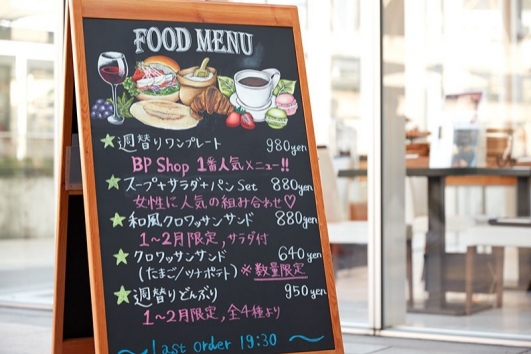 FOOD MENU
★週替りワンプレート 980yen
BP Shop 1番人気メニュー!!
★スープ+サラダ+パンSet 880yen
女性に人気の組み合わせ♡
★和風クロワッサンサンド 880yen
1〜2月限定,サラダ付
★クロワッサンサンド 640yen
(たまご/ツナポテト)※数量限定
★週替りどんぶり 950yen
1〜2月限定,全4種より
〜Last order 19:30〜